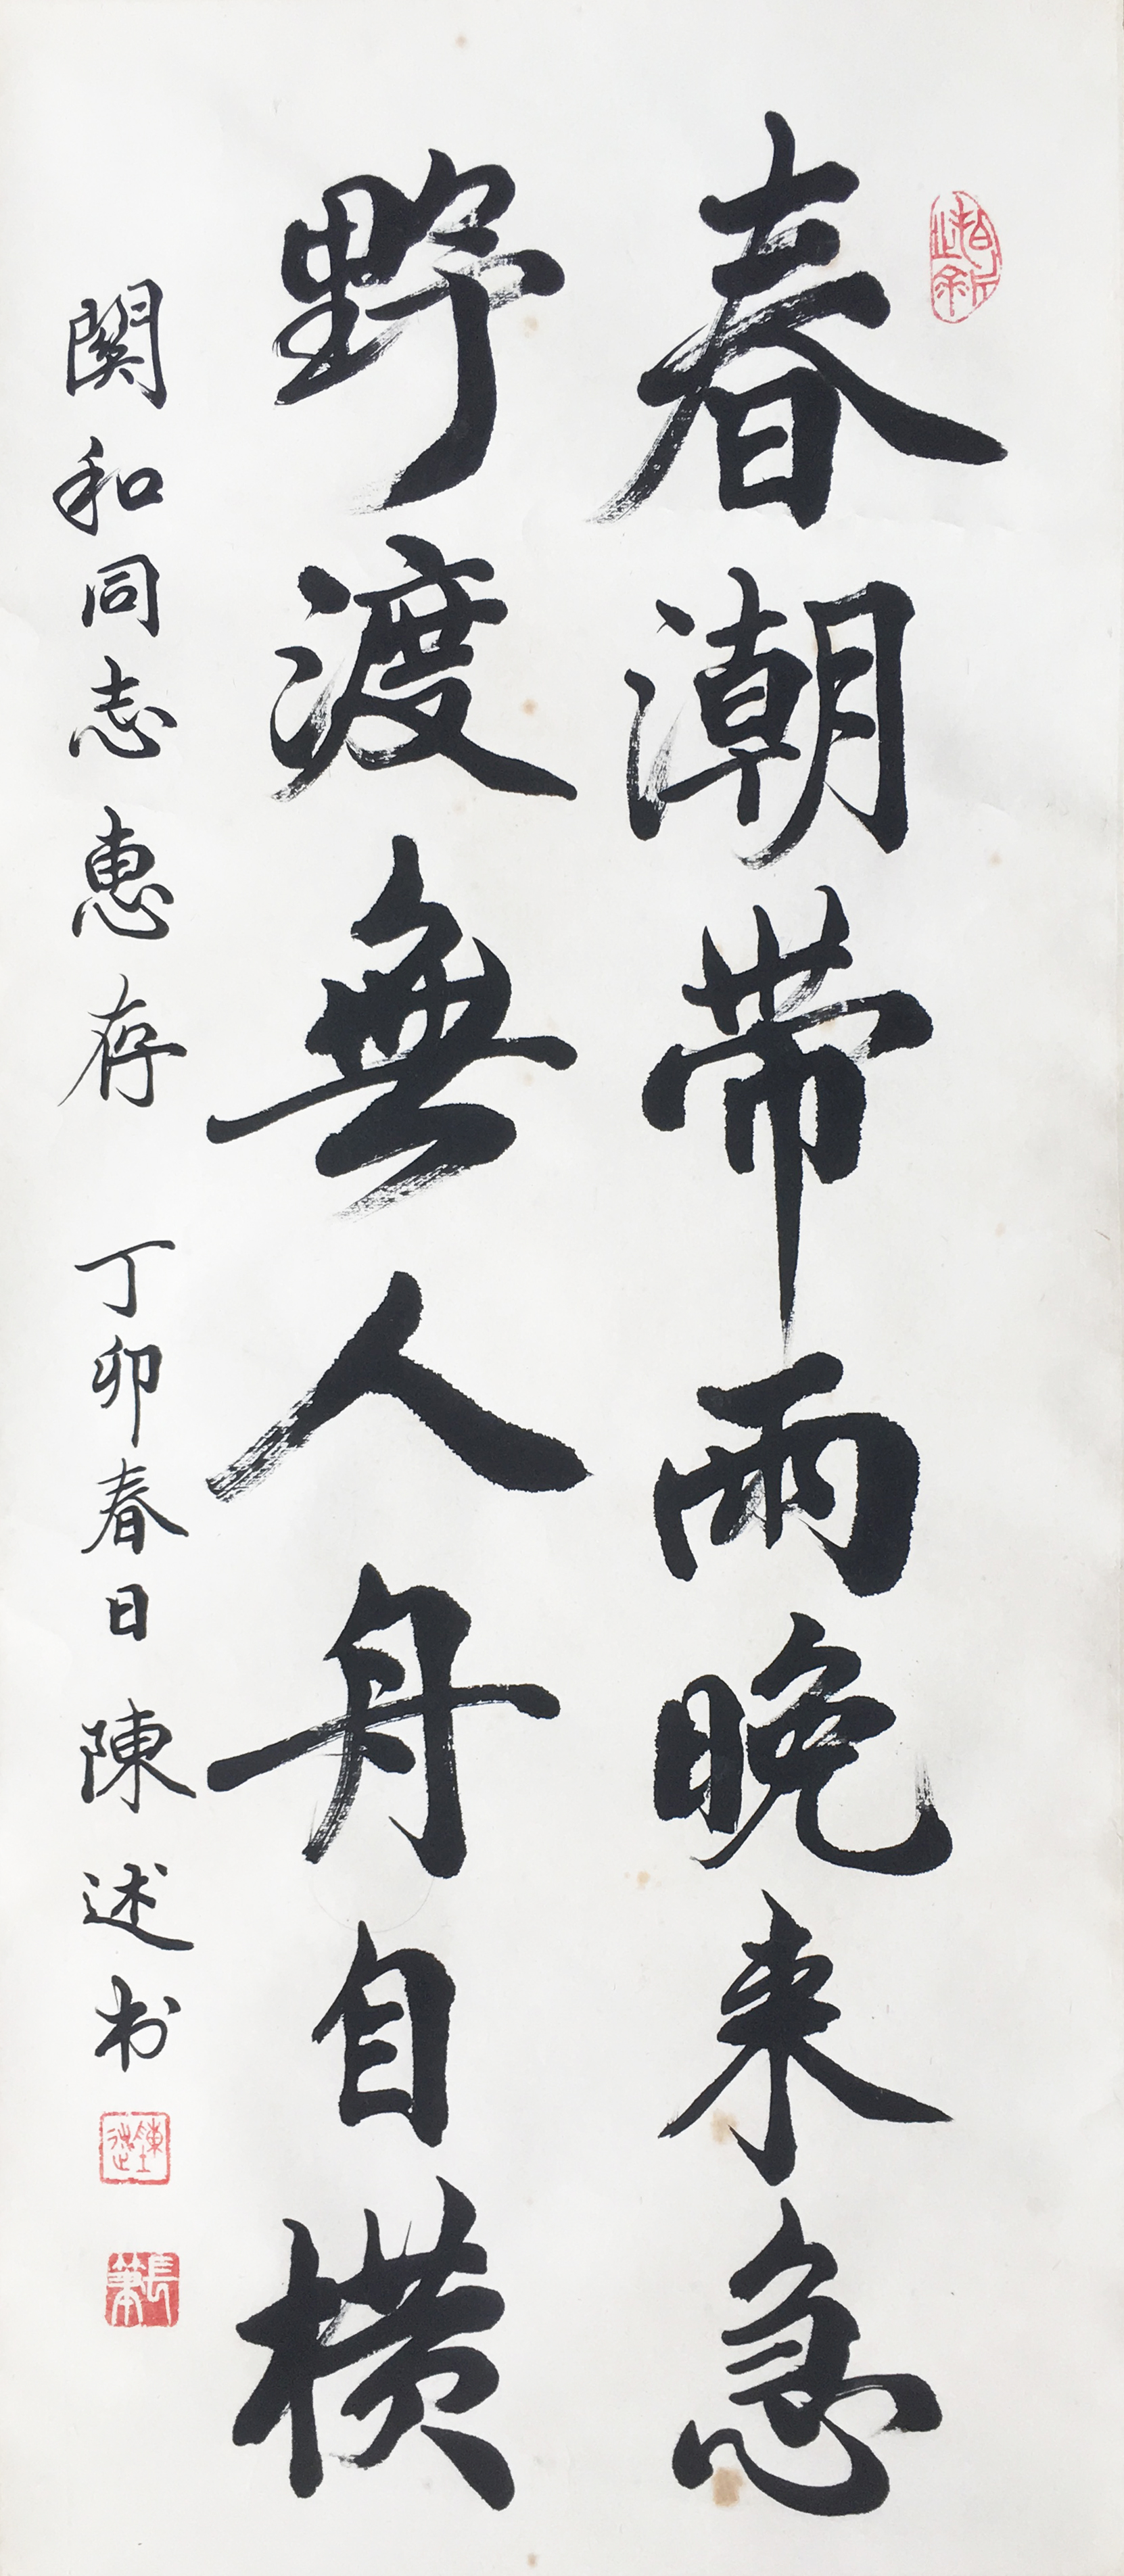 春潮带雨晚来急
野渡無人舟自横
関和同志惠存 丁卯春日 陳述书
陳述
長筆